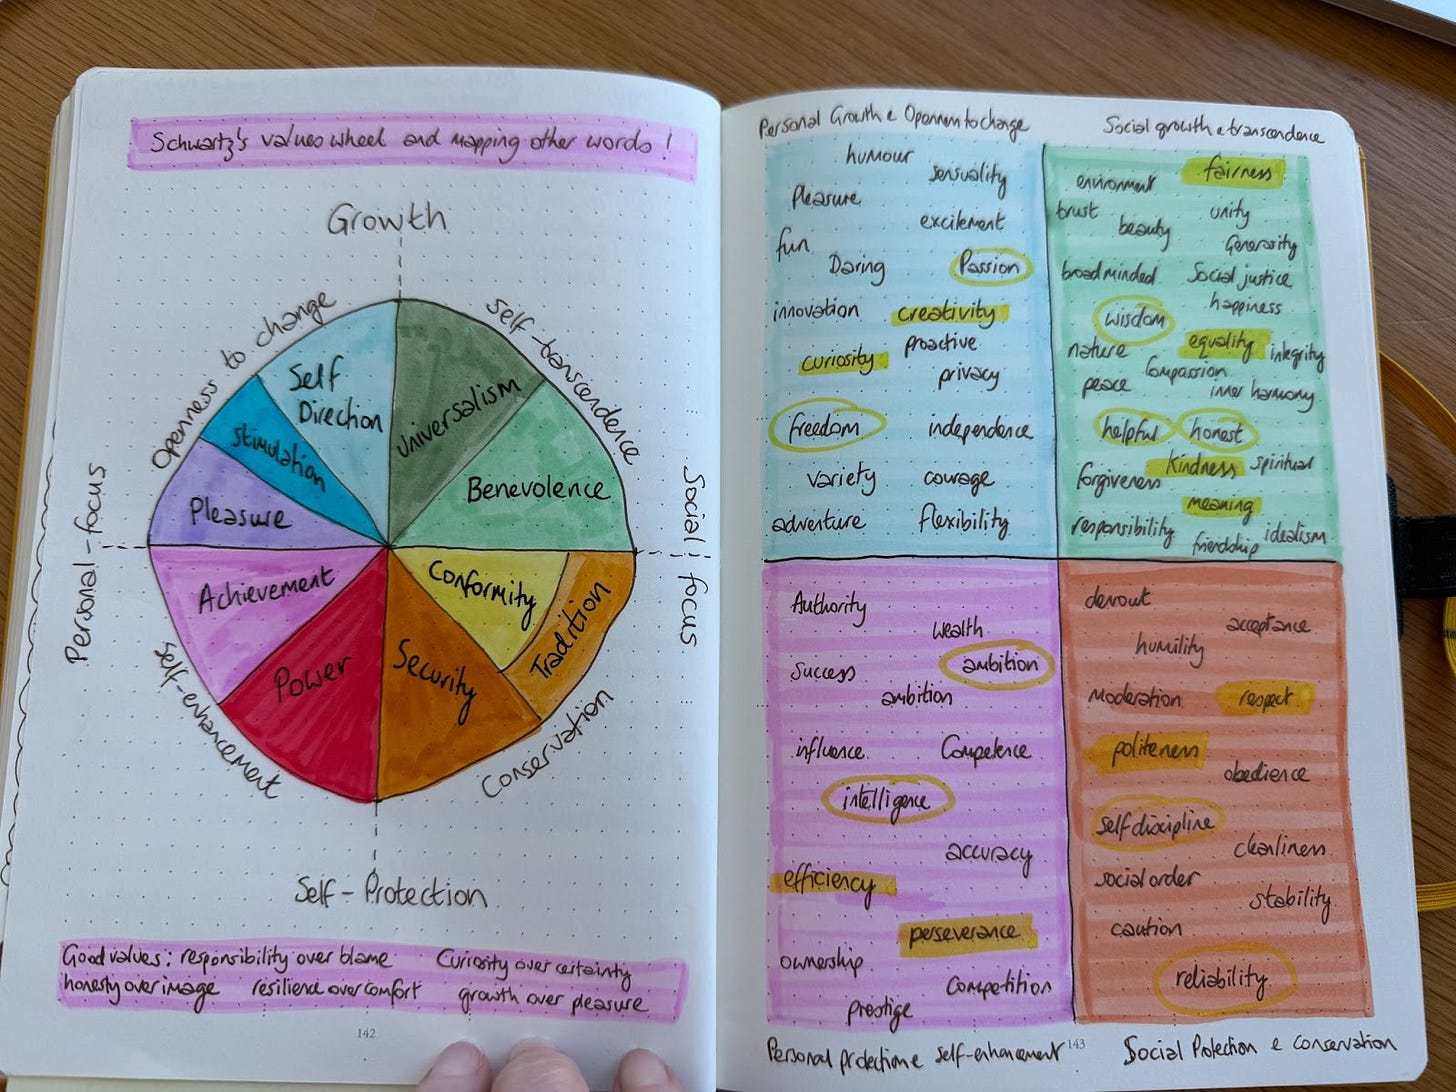 Schwartz's values wheel and mapping other words !
Growth
Openness to change
Self-transcendence
Personal-focus
Social focus
Self Direction
Universalism
Stimulation
Benevolence
Pleasure
Achievement
Conformity
Tradition
Power
Security
Self-enhancement
Conservation
Self-Protection
Good values: responsibility over blame Curiosity over certainty
honesty over image resilience over comfort growth over pleasure
142
Personal Growth & Openness to change
humour
sensuality
Pleasure
excitement
fun
Daring
Passion
innovation
creativity
curiosity
proactive
privacy
freedom
independence
variety
courage
adventure
flexibility
Social growth & transcendence
environment
fairness
trust
unity
beauty
Generosity
broadminded
Social justice
happiness
wisdom
equality
integrity
nature
Compassion
peace
inner harmony
helpful
honest
Kindness
spiritual
forgiveness
meaning
responsibility
friendship
idealism
Authority
wealth
Success
ambition
ambition
influence
Competence
intelligence
accuracy
efficiency
perseverance
ownership
Competition
prestige
Personal protection & self-enhancement
143
devout
acceptance
humility
Moderation
respect
politeness
obedience
self discipline
cleanliness
social order
stability
caution
reliability
Social Protection & Conservation